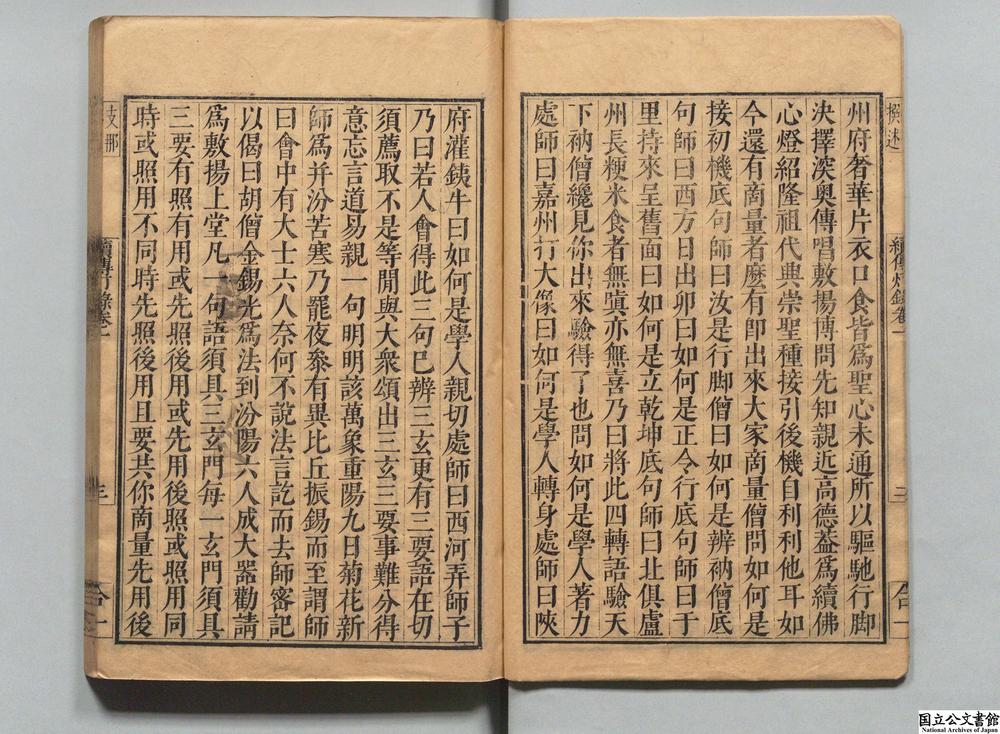 撰述
續傳燈錄卷一
三
合一
州府奢華片衣口食皆爲聖心未通所以驅馳行脚
決擇深奥傳唱敷揚博問先知親近高德葢爲續佛
心燈紹隆祖代興崇聖種接引後機自利利他耳如
今還有商量者麽有卽出來大家商量僧問如何是
接初機底句師曰汝是行脚僧曰如何是辨衲僧底
句師曰西方日出卯曰如何是正令行底句師曰千
里持來呈舊面曰如何是立乾坤底句師曰北俱盧
州長粳米食者無嗔亦無喜乃曰將此四轉語驗天
下衲僧纔見你出來驗得了也問如何是學人著力
處師曰嘉州打大像曰如何是學人轉身處師曰陜
府灌鐵牛曰如何是學人親切處師曰西河弄師子
乃曰若人會得此三句已辨三玄更有三要語在切
須薦取不是等閒與大衆頌出三玄三要事難分得
意忘言道易親一句明明該萬象重陽九日菊花新
師爲并汾苦寒乃罷夜叅有異比丘振錫而至謂師
曰會中有大士六人奈何不說法言訖而去師密記
以偈曰胡僧金錫光爲法到汾陽六人成大器勸請
爲敷揚上堂凡一句語須具三玄門每一玄門須具
三要有照有用或先照後用或先用後照或照用同
時或照用不同時先照後用且要共你商量先用後
支那
續傳燈錄卷一
三
合一
国立公文書館
National Archives of Japan